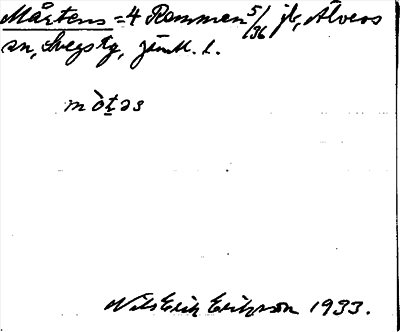 Mårtens = 4 Remmen 5/36 jb, Älvros
sn, Svegs tg, Jämtl. l.
mò̱təs
Nils Erik Erikson 1933.